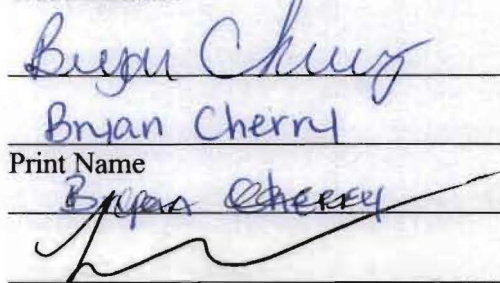 Bryan Cherry
Bryan Cherry
Print Name
Bryan Cherry